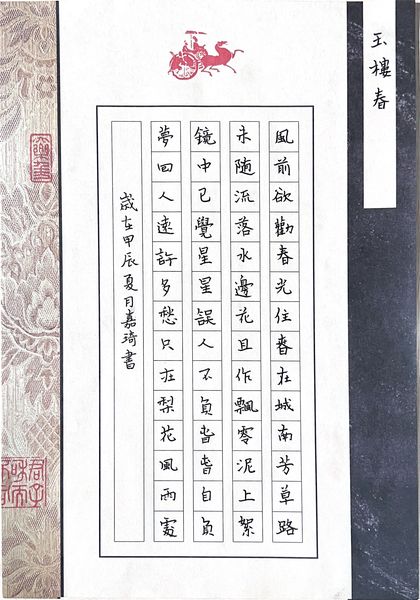 玉樓春
風前欲勸春光住春在城南芳草路
未隨流落水邊花且作飄零泥上絮
镜中已覺星星誤人不負旾旾自負
夢回人遠許多愁只在梨花風雨處
歲在甲辰夏月嘉琦書
君子